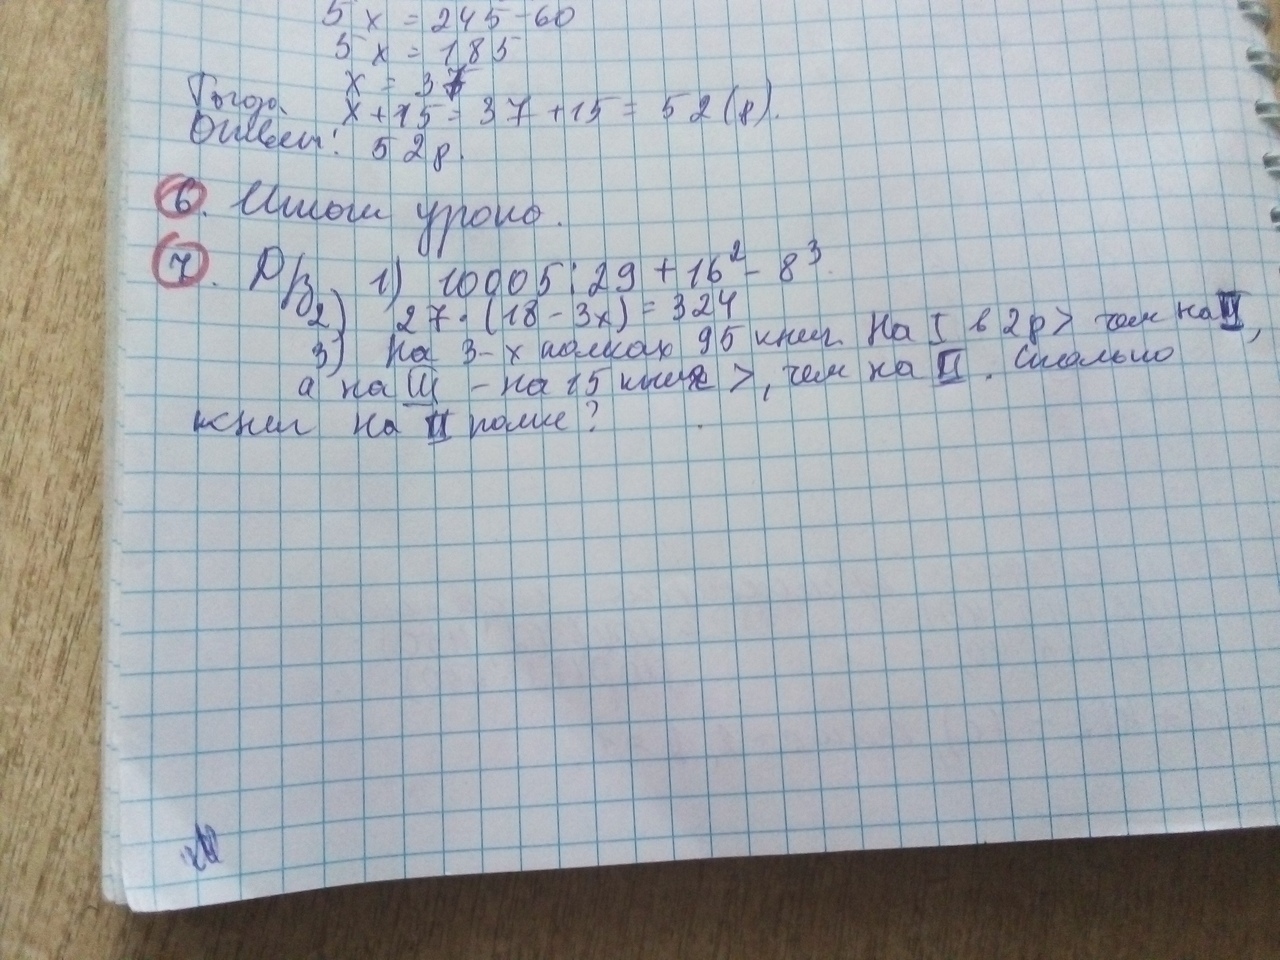 5x = 245-60
5x = 185
x = 37
Тогда x+15 = 37+15 = 52 (р).
Ответ: 52р.
6. Итог урока.
7. Д/з 1) 10005:29 + 16² - 8³.
2) 27·(18-3x) = 324
3) На 3-х полках 95 книг. На I в 2р > чем на II,
а на III - на 15 книг >, чем на II. Сколько
книг на II полке?